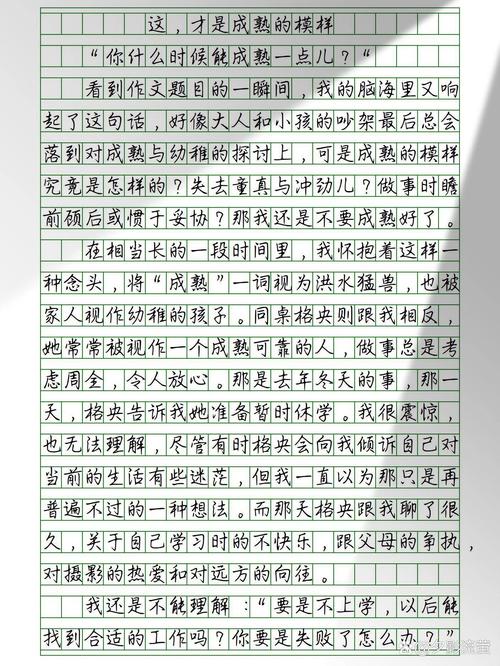 这，才是成熟的模样
“你什么时候能成熟一点儿？“
看到作文题目的一瞬间，我的脑海里又响
起了这句话，好像大人和小孩的吵架最后总会
落到对成熟与幼稚的探讨上，可是成熟的模样
究竟是怎样的？失去童真与冲劲儿？做事时瞻
前顾后或惯于妥协？那我还是不要成熟好了。
在相当长的一段时间里，我怀抱着这样一
种念头，将“成熟”一词视为洪水猛兽，也被
家人视作幼稚的孩子。同桌格央则跟我相反，
她常常被视作一个成熟可靠的人，做事总是考
虑周全，令人放心。那是去年冬天的事，那一
天，格央告诉我她准备暂时休学。我很震惊，
也无法理解，尽管有时格央会向我倾诉自己对
当前的生活有些迷茫，但我一直以为那只是再
普遍不过的一种想法。而那天格央跟我聊了很
久，关于自己学习时的不快乐，跟父母的争执，
对摄影的热爱和对远方的向往。
我还是不能理解：“要是不上学，以后能
找到合适的工作吗？你要是失败了怎么办？”